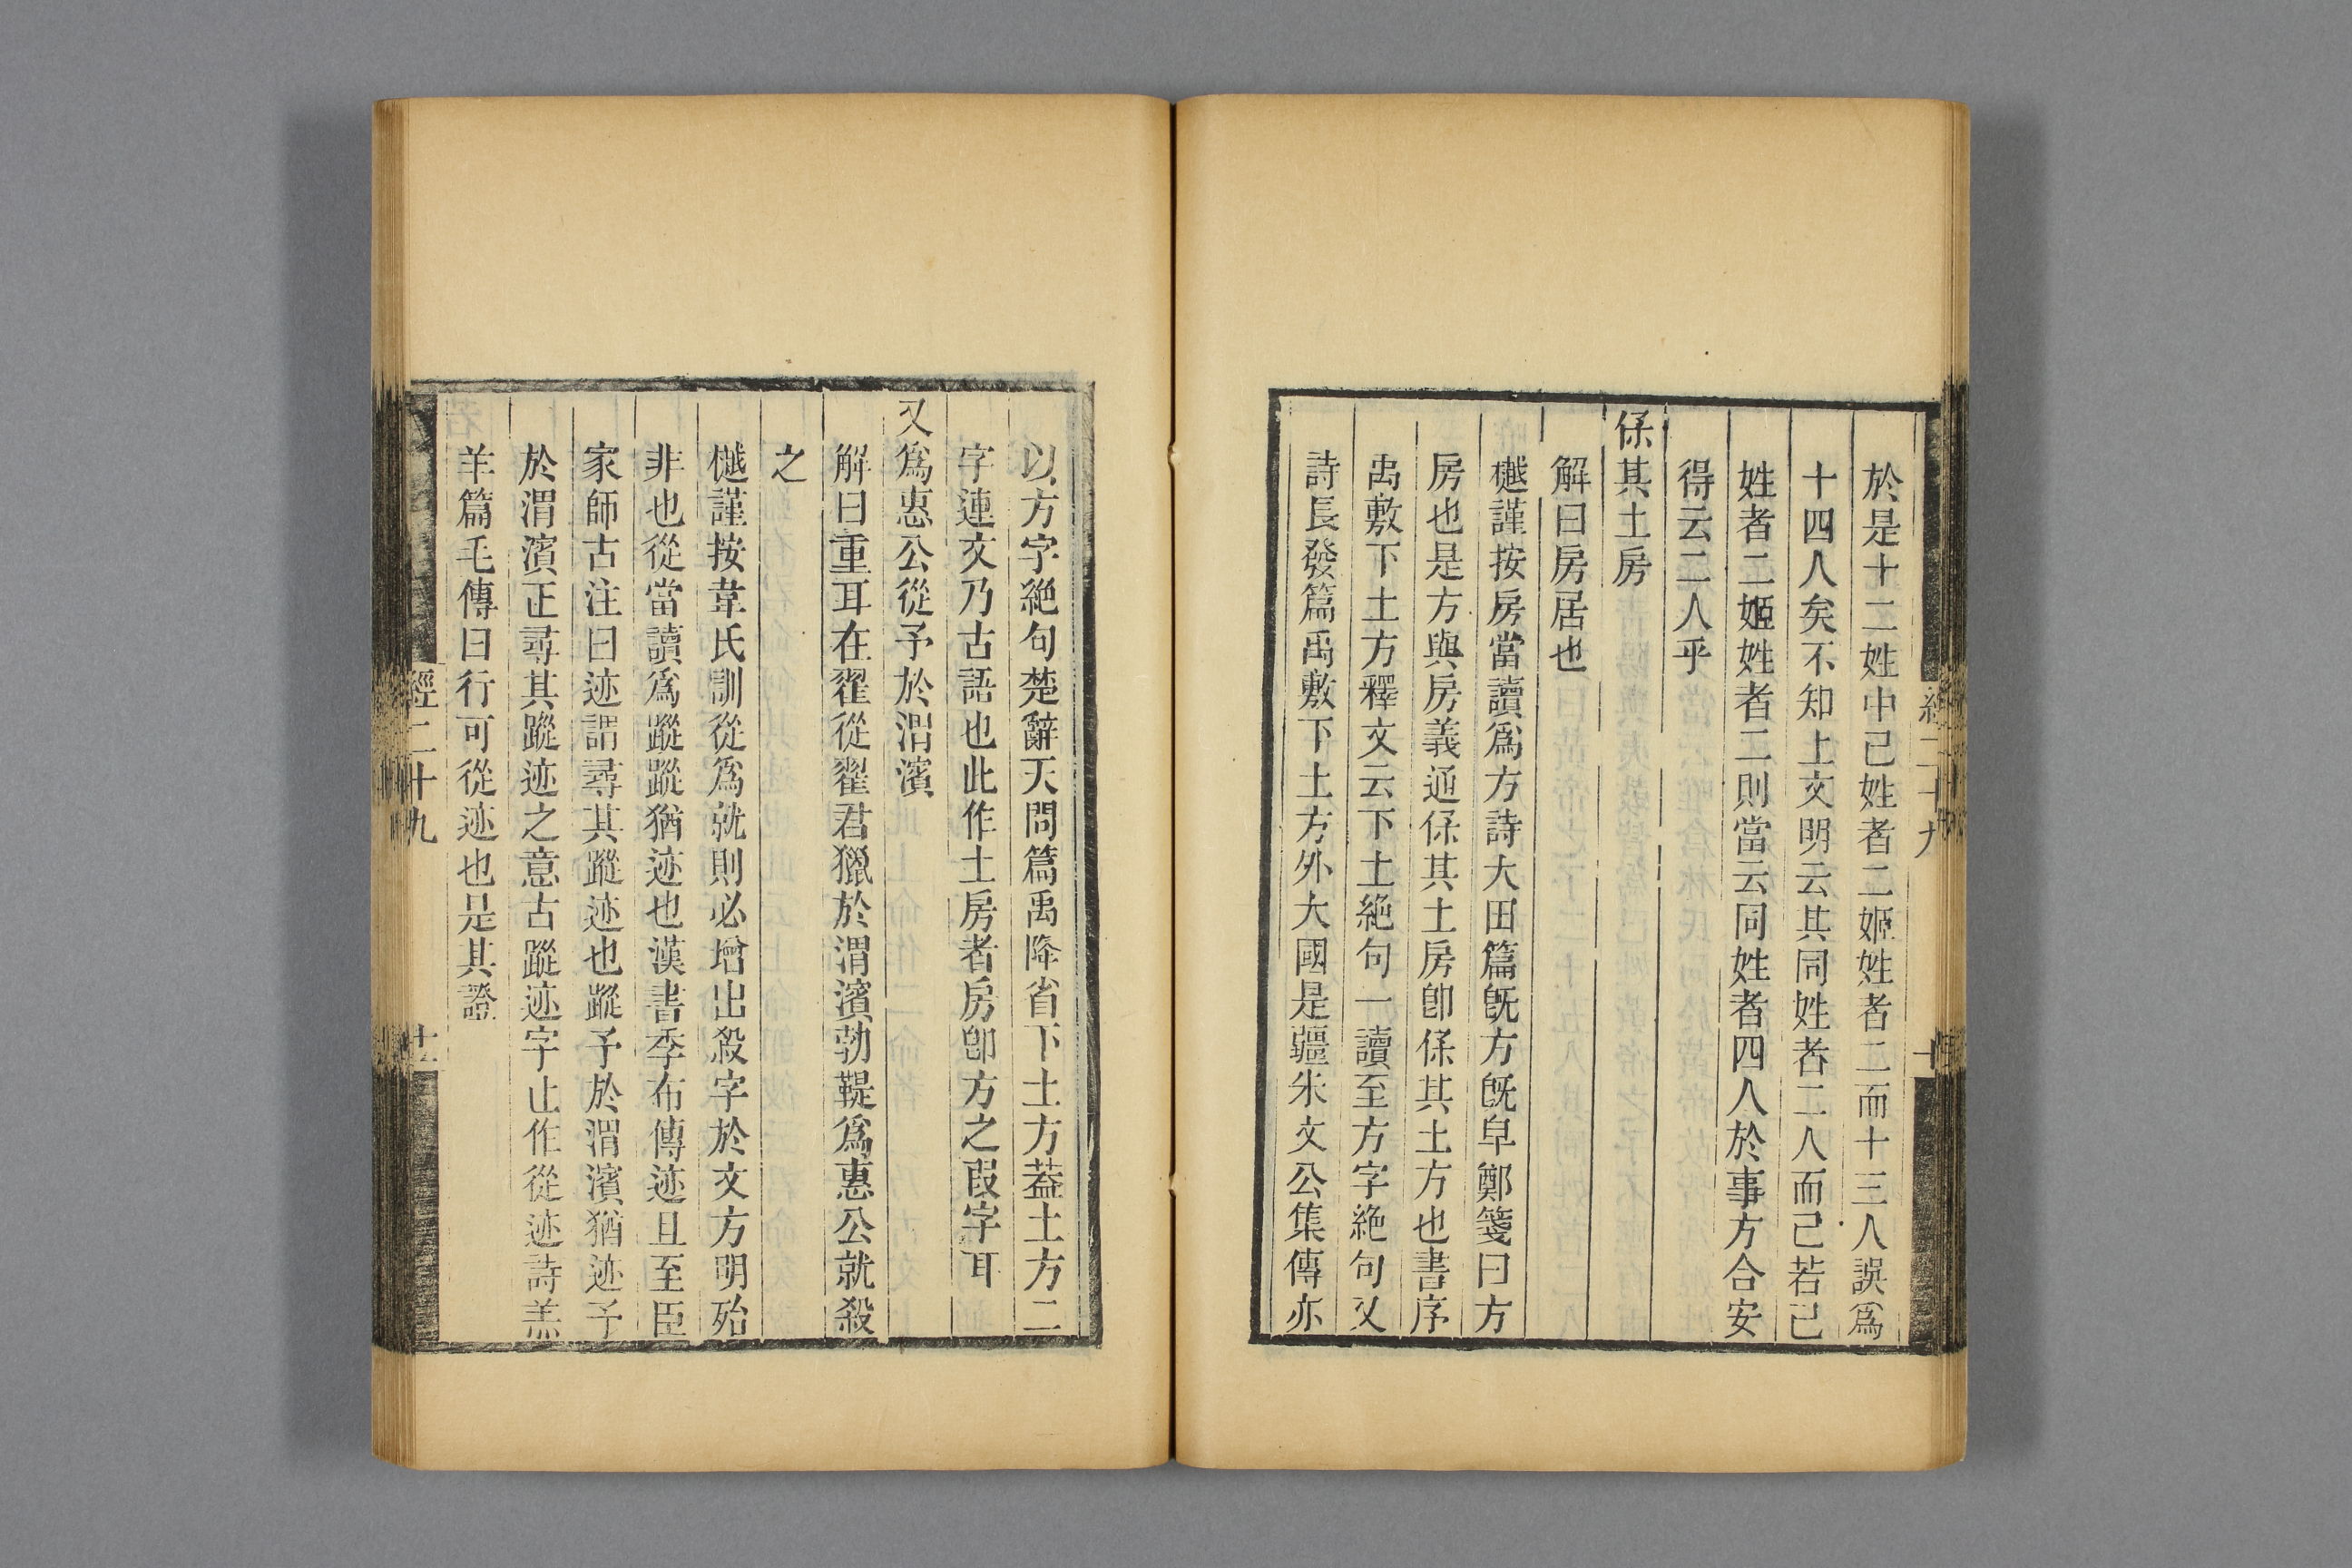 於是十二姓中己姓者二姬姓者二而十三人誤爲
十四人矣不知上文明云其同姓者二人而己若己
姓者二姬姓者二則當云同姓者四人於事方合安
得云二人乎
保其土房
解曰房居也
樾謹按房當讀爲方詩大田篇旣方旣皁鄭箋曰方
房也是方與房義通保其土房卽保其土方也書序
禹敷下土方釋文云下土絶句一讀至方字絶句又
詩長發篇禹敷下土方外大國是疆朱文公集傳亦
以方字絶句楚辭天問篇禹降省下土方葢土方二
字連文乃古語也此作土房者房卽方之叚字耳
又爲惠公從予於渭濱
解曰重耳在翟從翟君獵於渭濱勃鞮爲惠公就殺
之
樾謹按韋氏訓從爲就則必增出殺字於文方明殆
非也從當讀爲蹤蹤猶迹也漢書季布傳迹且至臣
家師古注曰迹謂尋其蹤迹也蹤予於渭濱猶迹予
於渭濱正尋其蹤迹之意古蹤迹字止作從迹詩羔
羊篇毛傳曰行可從迹也是其證
經二十九
十一